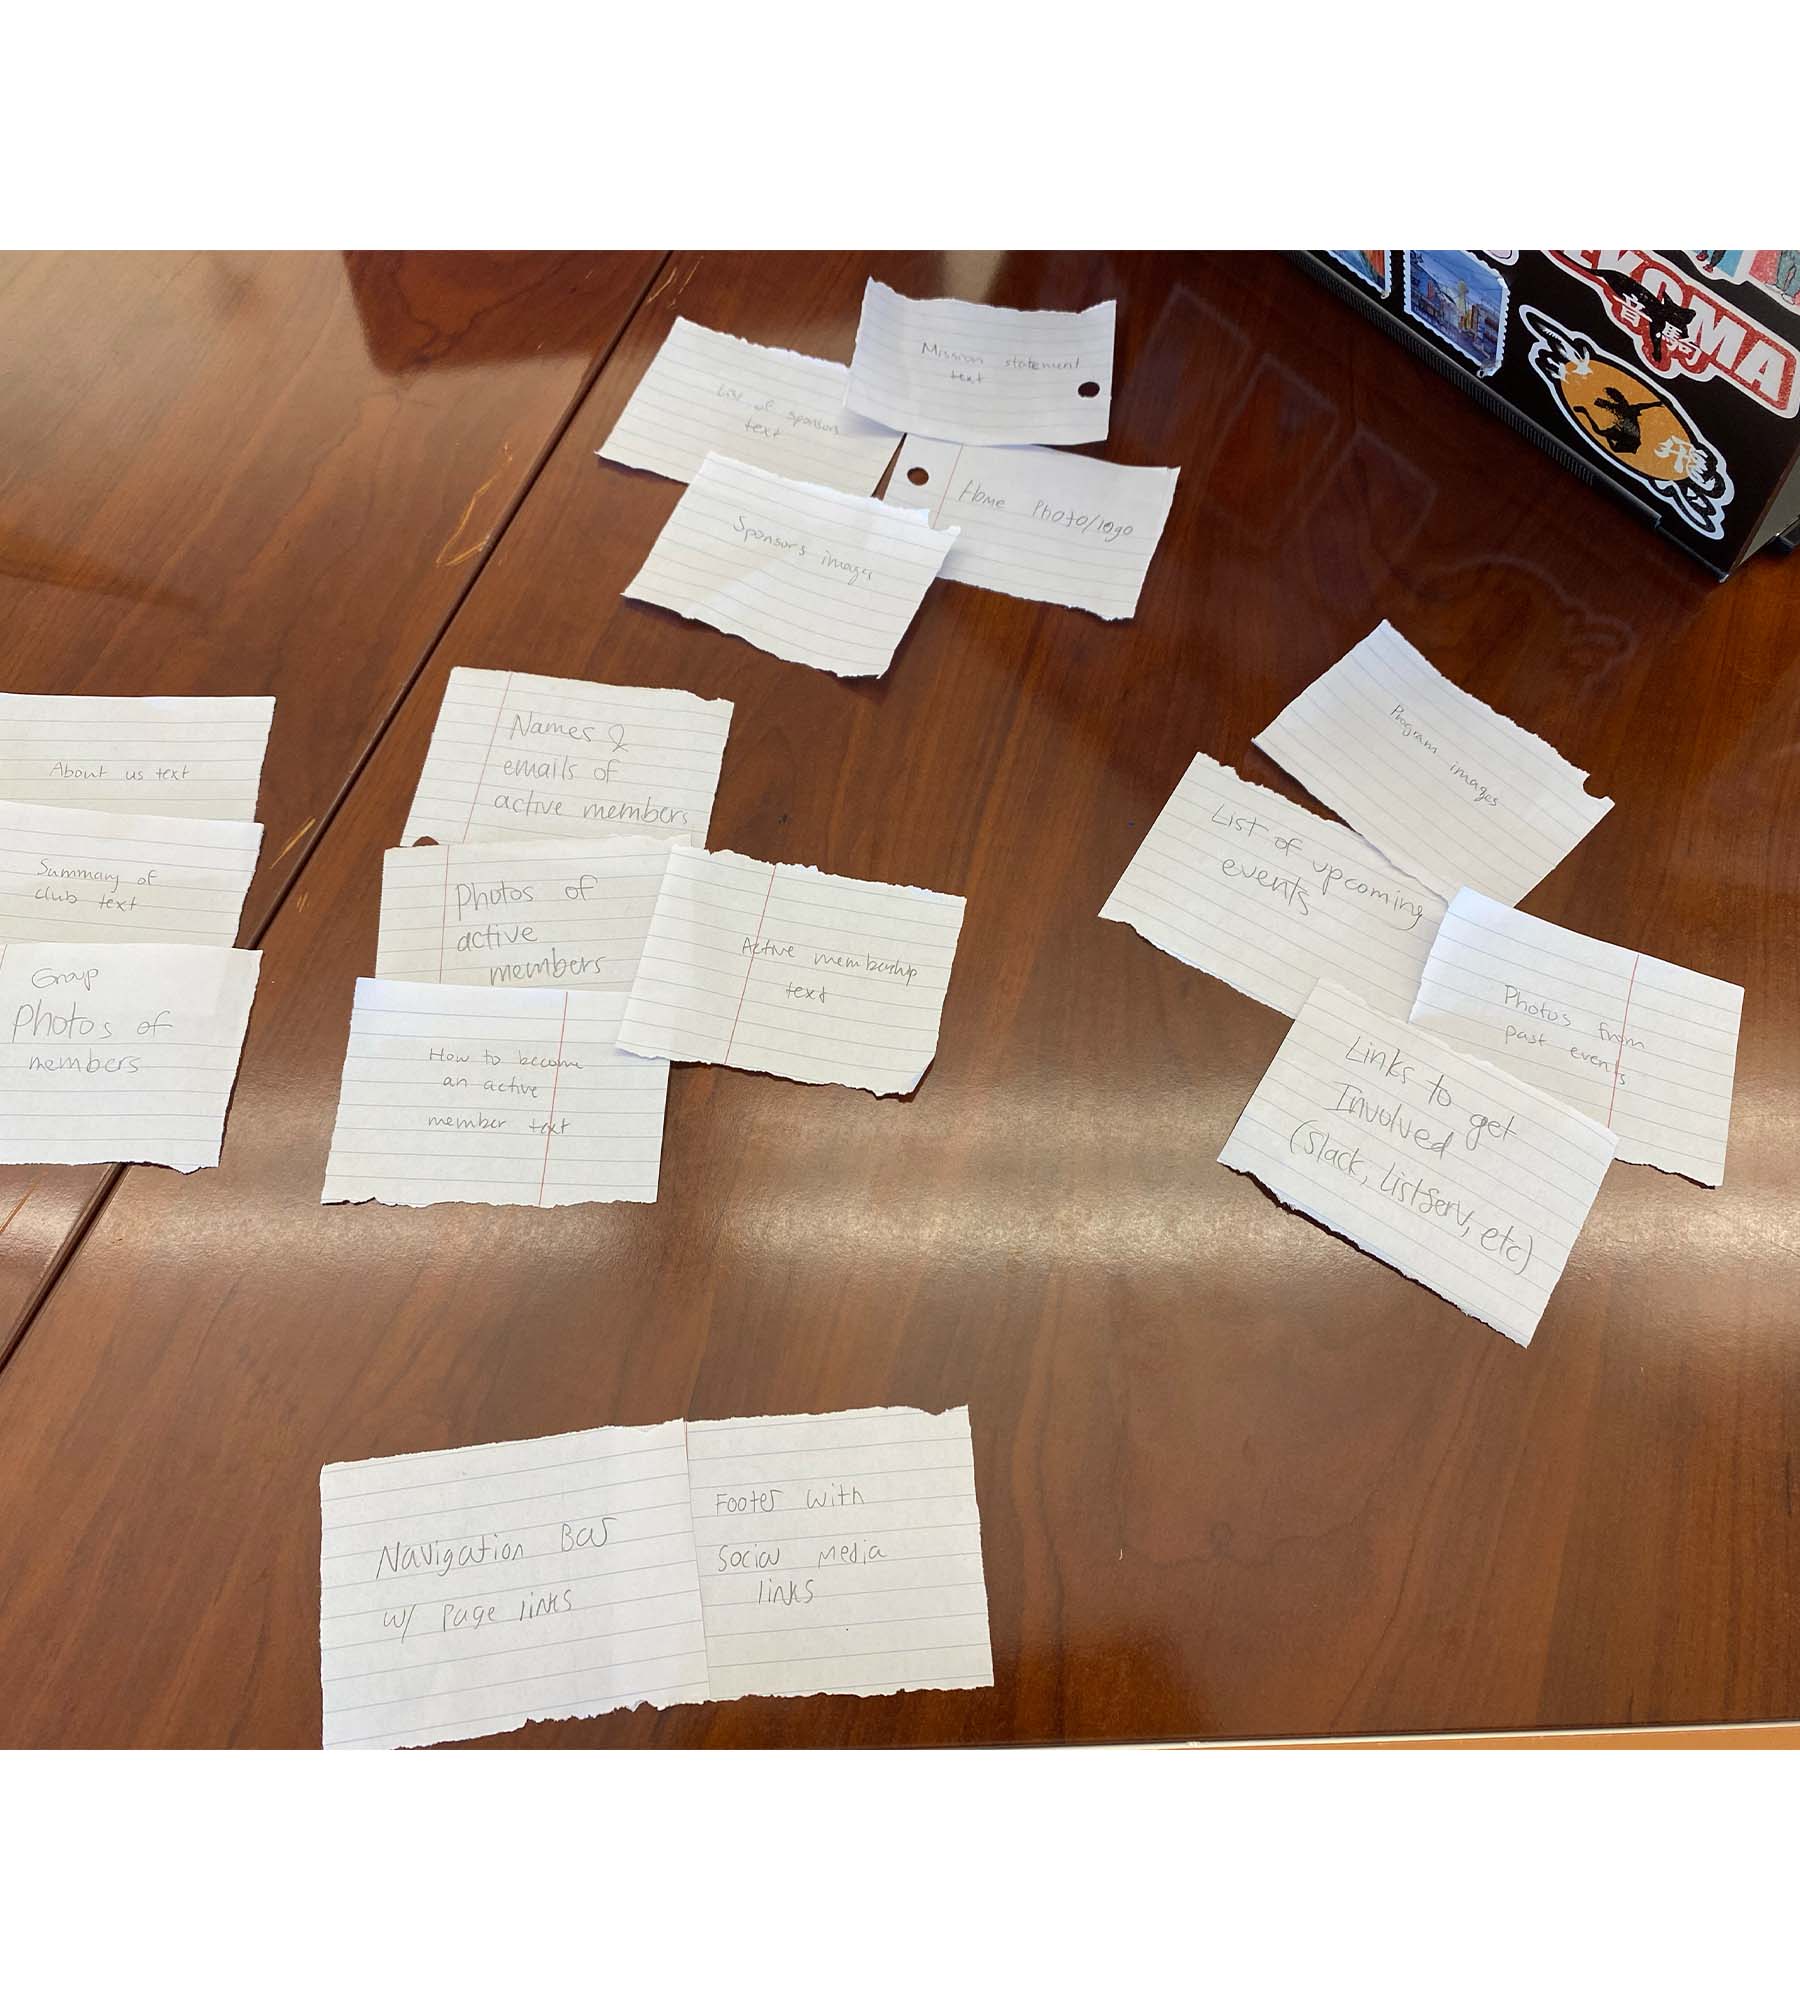 Mission statement
text
List of sponsors
text
Home Photo/logo
Sponsors images
VOMA
音 馬
飛
About us text
Summary of
club text
Group
Photos of
members
Names &
emails of
active members
Photos of
active
members
Active membership
text
How to become
an active
member text
Program images
List of upcoming
events
Photos from
past events
Links to get
Involved
(Slack, Listserv, etc)
Navigation Bar
w/ page links
Footer with
Social Media
links